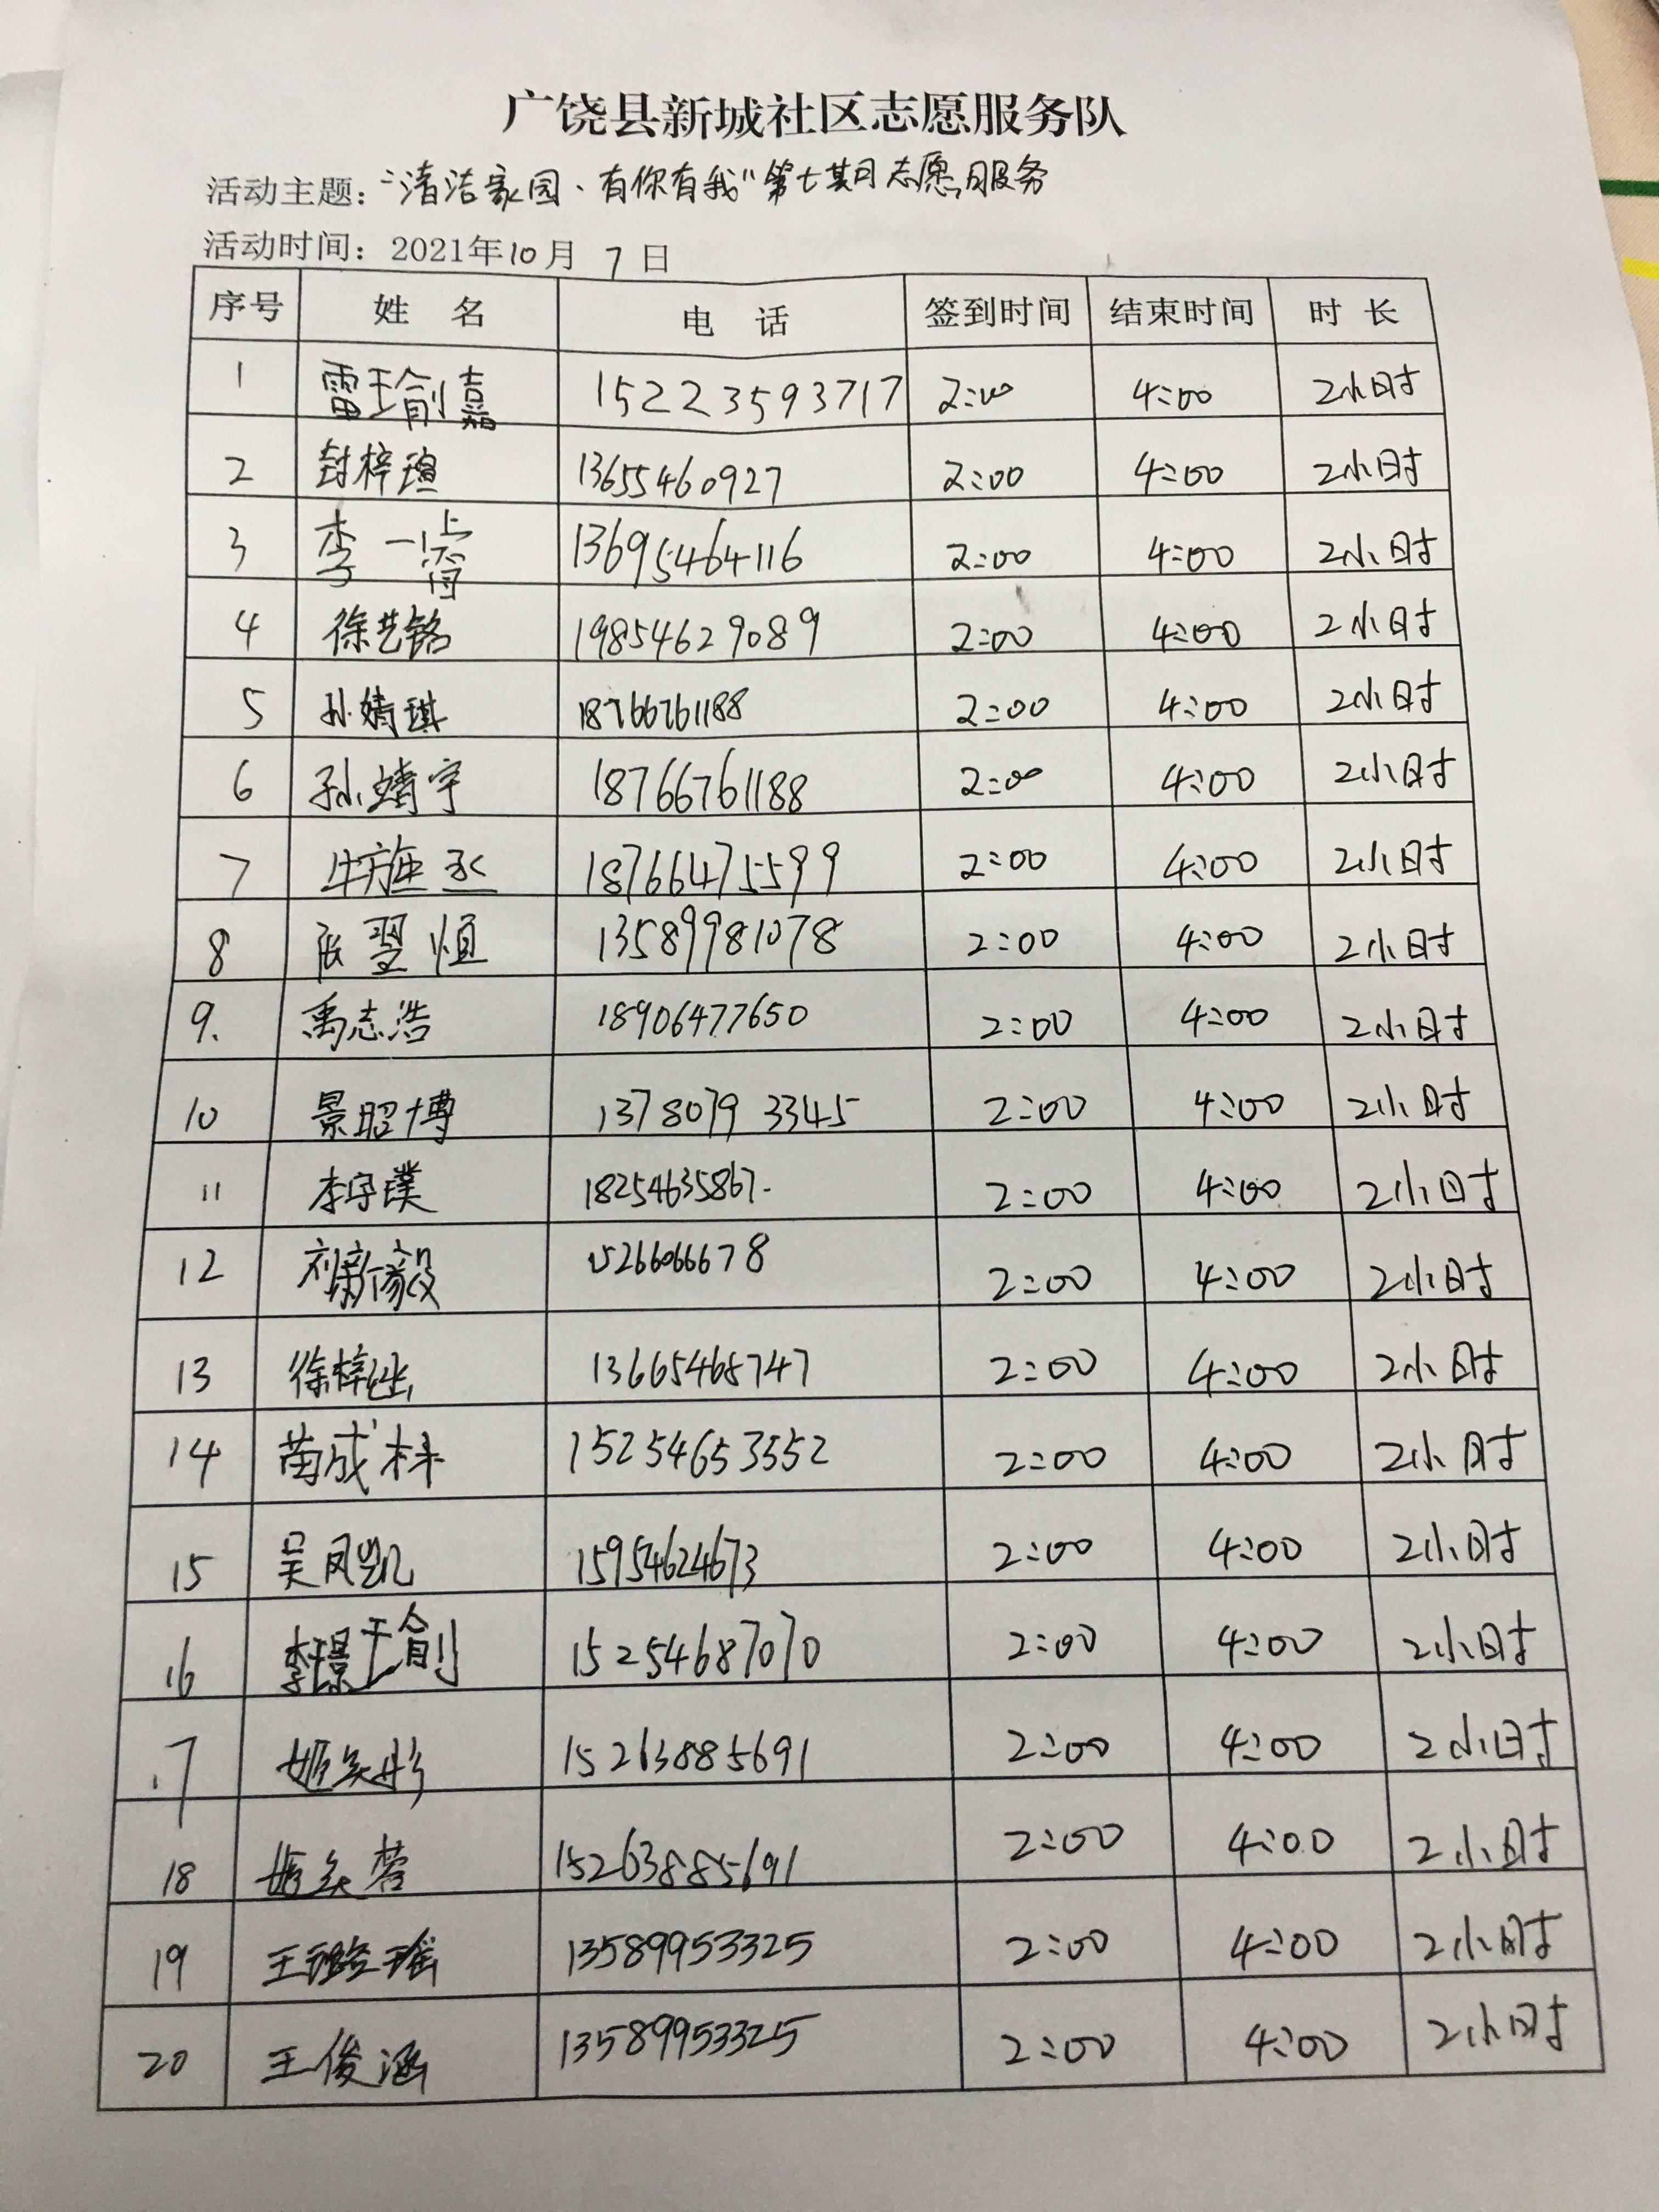 广饶县新城社区志愿服务队
活动主题：“清洁家园、有你有我”第七期志愿服务
活动时间：2021年10月7日
序号 姓名 电话 签到时间 结束时间 时长
1 雷瑜嘉 15223593717 2:00 4:00 2小时
2 封梓瑄 13655460927 2:00 4:00 2小时
3 李一 13695464116 2:00 4:00 2小时
4 徐艺铭 19854629089 2:00 4:00 2小时
5 孙婧琪 18766761188 2:00 4:00 2小时
6 孙婧宇 18766761188 2:00 4:00 2小时
7 牛施丞 18766475599 2:00 4:00 2小时
8 张翌恒 13589981078 2:00 4:00 2小时
9. 禹志浩 18906477650 2:00 4:00 2小时
10 景昭博 13780793345 2:00 4:00 2小时
11 李守璞 18254635867. 2:00 4:00 2小时
12 刘新毅 15266066678 2:00 4:00 2小时
13 徐梓 13665468747 2:00 4:00 2小时
14 苗成林 15254653552 2:00 4:00 2小时
15 吴凤凯 15954624673 2:00 4:00 2小时
16 李璟瑜 15254687070 2:00 4:00 2小时
17 姬奂彤 15263885691 2:00 4:00 2小时
18 姬奂蓉 15263885691 2:00 4:00 2小时
19 王璐瑶 13589953325 2:00 4:00 2小时
20 王俊涵 13589953325 2:00 4:00 2小时